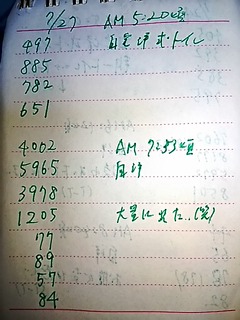 7/27 AM 5:20頃
497
885
782
651
4002 AM 7:53頃
5965
3978
1205 大量に出た..(笑)
77
89
57
84